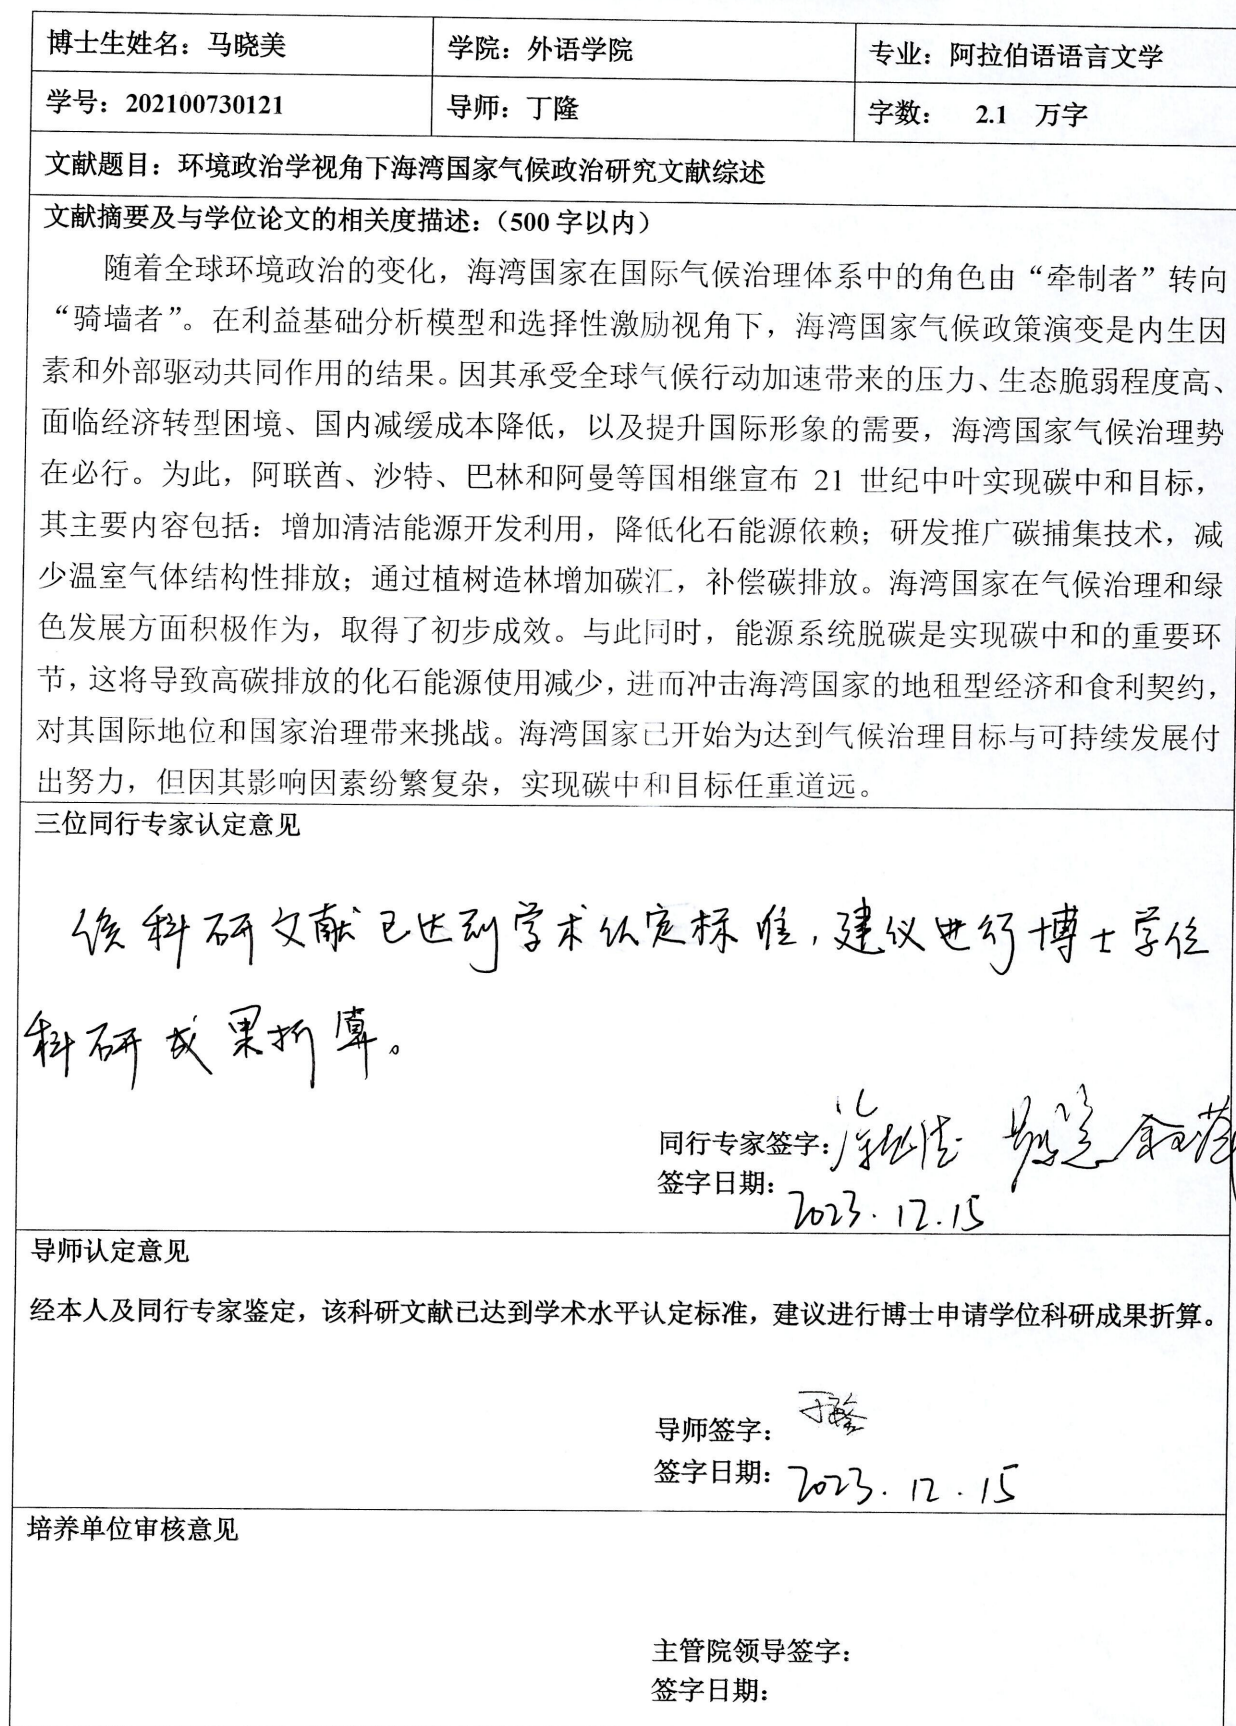 博士生姓名：马晓美 学院：外语学院 专业：阿拉伯语语言文学
学号：202100730121 导师：丁隆 字数： 2.1 万字
文献题目：环境政治学视角下海湾国家气候政治研究文献综述
文献摘要及与学位论文的相关度描述：（500字以内）
随着全球环境政治的变化，海湾国家在国际气候治理体系中的角色由“牵制者”转向
“骑墙者”。在利益基础分析模型和选择性激励视角下，海湾国家气候政策演变是内生因
素和外部驱动共同作用的结果。因其承受全球气候行动加速带来的压力、生态脆弱程度高、
面临经济转型困境、国内减缓成本降低，以及提升国际形象的需要，海湾国家气候治理势
在必行。为此，阿联酋、沙特、巴林和阿曼等国相继宣布 21 世纪中叶实现碳中和目标，
其主要内容包括：增加清洁能源开发利用，降低化石能源依赖；研发推广碳捕集技术，减
少温室气体结构性排放；通过植树造林增加碳汇，补偿碳排放。海湾国家在气候治理和绿
色发展方面积极作为，取得了初步成效。与此同时，能源系统脱碳是实现碳中和的重要环
节，这将导致高碳排放的化石能源使用减少，进而冲击海湾国家的地租型经济和食利契约，
对其国际地位和国家治理带来挑战。海湾国家已开始为达到气候治理目标与可持续发展付
出努力，但因其影响因素纷繁复杂，实现碳中和目标任重道远。
三位同行专家认定意见
该科研文献已达到学术认定标准，建议进行博士学位
科研成果折算。
同行专家签字：
签字日期：2023.12.15
导师认定意见
经本人及同行专家鉴定，该科研文献已达到学术水平认定标准，建议进行博士申请学位科研成果折算。
导师签字：丁隆
签字日期：2023.12.15
培养单位审核意见
主管院领导签字：
签字日期：